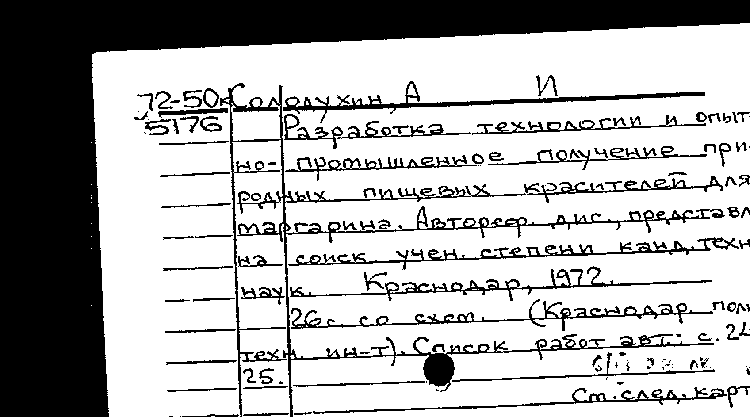 72-50к Солодухин, А И
5176 Разработка технологии и опыт
но-промышленное получение при-
родных пищевых красителей для
маргарина. Автореф. дис., представл
на соиск. учен. степени канд. техн
наук. Краснодар, 1972.
26с. со схем. (Краснодар. поли
техн. ин-т). Список работ авт.: с. 24
25.
См. след. карт